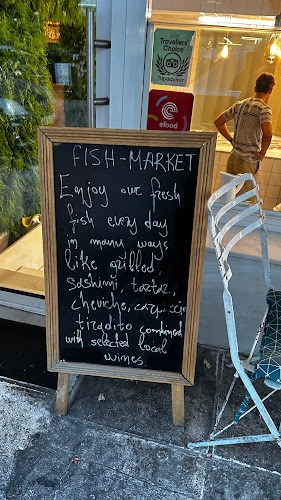 Travellers'
Choice
Tripadvisor
efood
FISH-MARKET
Enjoy our fresh
fish every day
in many ways
like grilled,
Sashimi, tartar,
cheviche, carpaccio
tiradito combined
with selected local
wines.